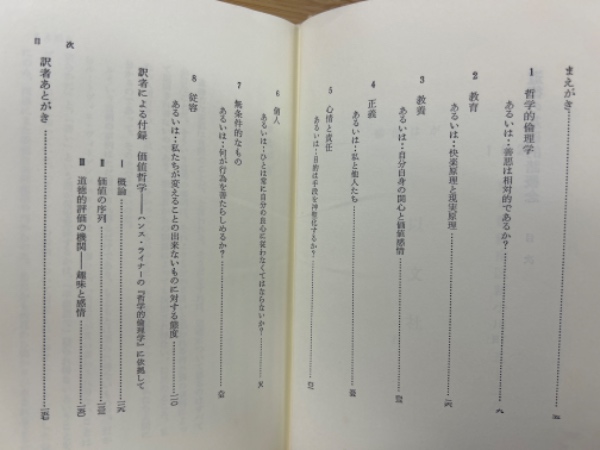 まえがき
1 哲学的倫理学
あるいは：善悪は相対的であるか？
2 教育
あるいは：快楽原理と現実原理
3 教養
あるいは：自分自身の関心と価値感情
4 正義
あるいは：私と他人たち
5 心情と責任
あるいは：目的は手段を神聖化するか？
6 個人
あるいは：ひとは常に自分の良心に従わなくてはならないか？
7 無条件的なもの
あるいは：何が行為を善たらしめるか？
8 従容
あるいは：私たちが変えることの出来ないものに対する態度
訳者による付録 価値哲学――ハンス・ライナーの『哲学的倫理学』に依拠して
I 概論
II 価値の序列
III 道徳的評価の機関――趣味と感情
訳者あとがき
目 次